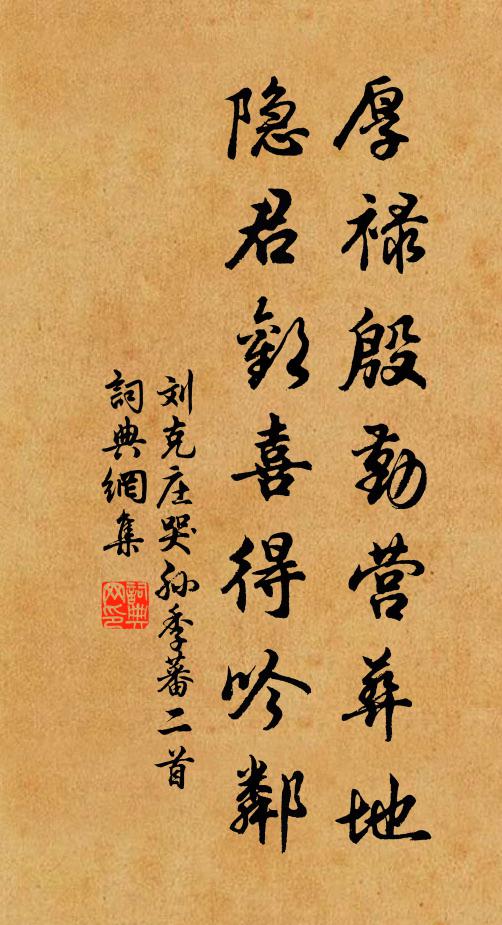 厚禄殷勤营葬地
隐君歡喜得吟鄰
刘克庄哭孙季蕃二首
詞典網集
詞典网印